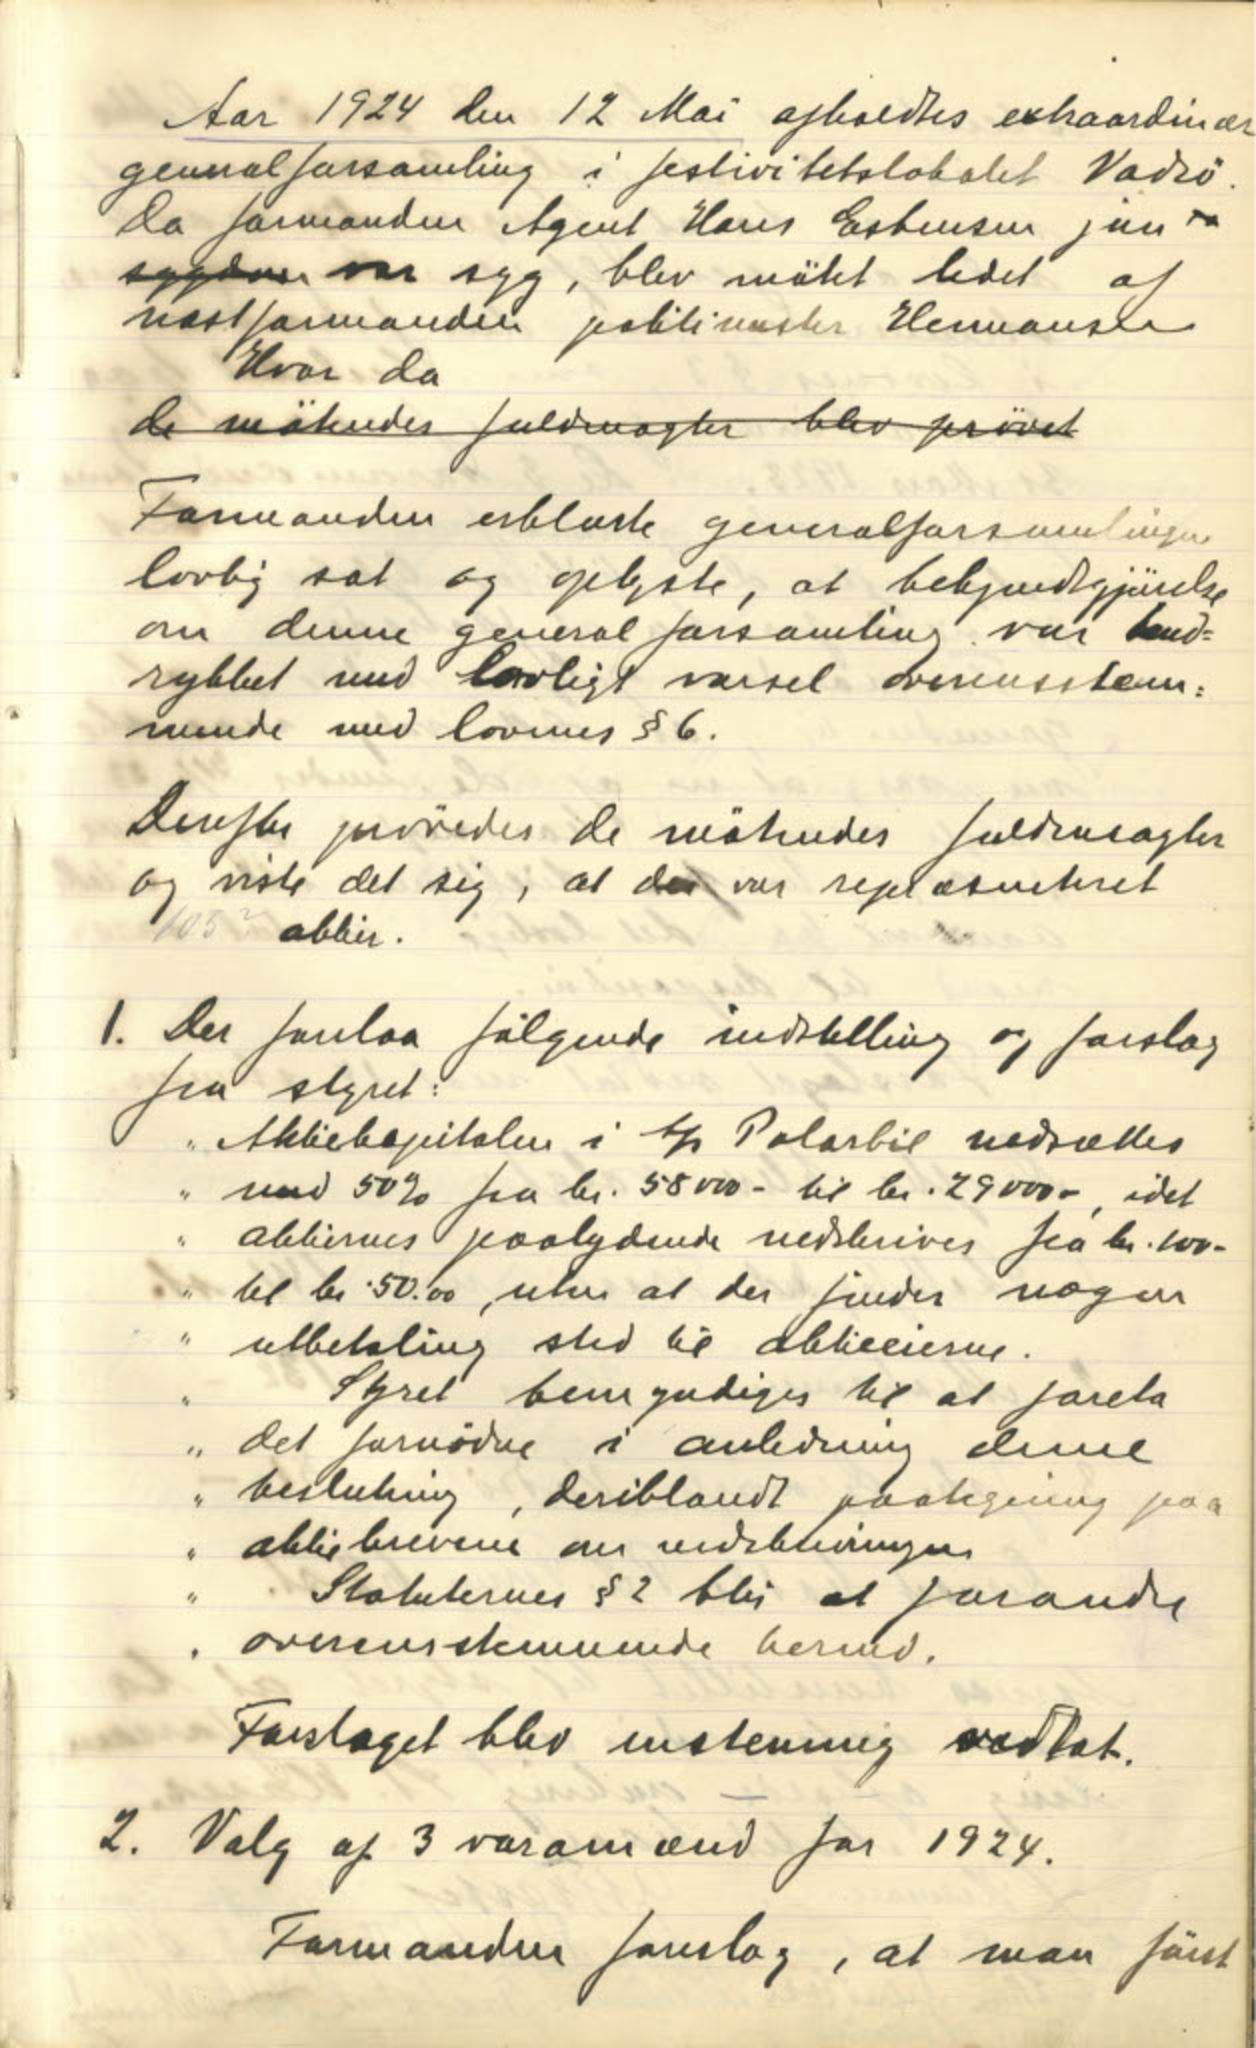 Aar 1924 den 12 Mai afholdtes extraordinær
generalforsamling i festivitetslokalet Vadsö.
Da formanden Agent Hans Esbensen jun va
sygdom var syg, blev mötet ledet af
næstformanden politimester Hermansen
Hvor da
de mötendes fuldmagter blev prövet
Formanden erklærte generalforsamlingen
lovlig sat og oplyste, at bekjendtgjörelse
om denne generalforsamling var ind=
rykket med lovligt varsel overensstem:
mende med lovenes § 6.
Derefter prövedes de mötendes fuldmagter
og viste det sig, at der var repræsenteret
105 aktier.
1. Der forelaa fölgende indstilling og forslag
fra styret:
" Aktiekapitalen i A/S Polarbil nedsættes
" med 50% fra kr. 58000- til kr. 29000-, idet
" aktiernes paalydende nedskrives fra kr. 100-
" til kr. 50.00, uten at der finder nogen
" utbetaling sted til aktieeierne.
" Styret bemyndiges til at foreta
" det fornödne i anledning denne
" beslutning, deriblandt paategning paa
" aktiebrevene om nedskrivningen
" Statuternes § 2 blir at forandre
" overensstemmende hermed.
Forslaget blev enstemmig vedtat.
2. Valg af 3 varamænd for 1924.
Formanden foreslog, at man först